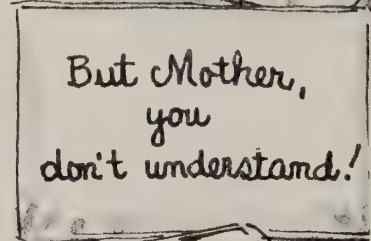 But Mother,
you
don't understand!